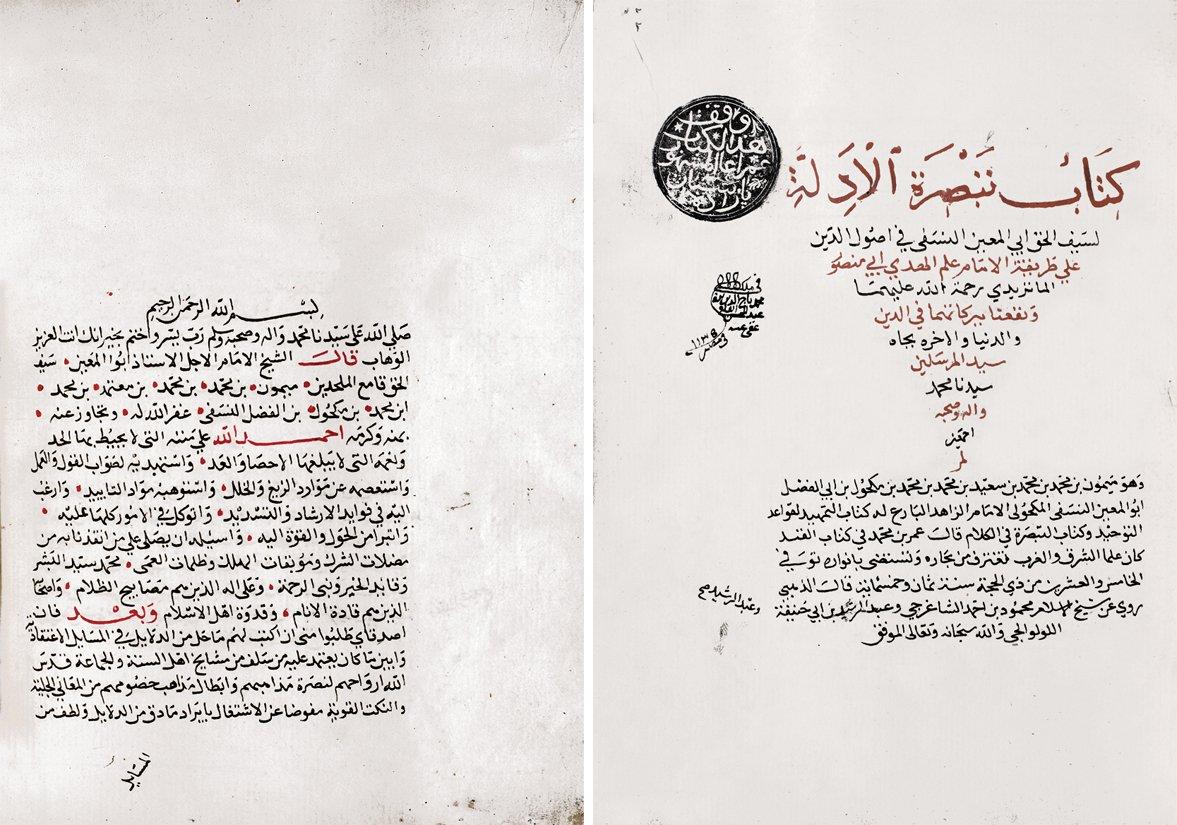 كتاب تبصرة الأدلة
لسيف الحق ابي المعين النسفي في اصول الدين
علي طريقة الامام علم الهدي ابي منصور
الماتريدي رحمة الله عليهما
ونفعنا ببركاتهما في الدين
والدنيا والاخره بجاه
سيد المرسلين
سيدنا محمد
واله وصحبه
اجمعين
وهو ميمون بن محمد بن محمد بن سعيد بن محمد بن محمد بن مكحول بن ابي الفضل
ابو المعين النسفي المكحولي الامام الزاهد البارع له كتاب التمهيد لقواعد
التوحيد وكتاب التبصرة في الكلام قالت عمر بن محمد في كتاب القند
كان علما الشرق والغرب تغترف من بحاره وتستضي بانواره توفي في
الخامس والعشرين من ذي الحجة سنة ثمان وخمسمائة قالت الذهبي
روي عن شيخ الاسلام محمود بن احمد الشاغرجي وعبد الرشيد بن ابي حنيفة
اللولوالجي والله سبحانه وتعالى الموفق
وعبد الرشيد صح
وقف
هذا الكتاب
١١٣٥
بسم الله الرحمن الرحيم
صلي الله على سيدنا محمد واله وصحبه وسلم رب يسر واختم بخير انك انت العزيز
الوهاب قالت الشيخ الامام الاجل الاستاذ ابو المعين سيف
الحق قامع الملحدين ميمون بن محمد بن محمد بن معتمد بن محمد
ابن محمد بن مكحول بن الفضل النسفي غفر الله له وتجاوز عنه
بمنه وكرمه احمد الله علي مننه التى لا يحيط بها الحد
ونعمه التى لا يبلغها الاحصا والعد واستهديه لصواب القول والعمل
واستعصمه عن موارد الزيغ والخلل واستوهبه مواد التاييد وارغب
اليه في فوايد الارشاد والتسديد واتوكل في الامور كلها عليه
واتبرا من الحول والقوة اليه واسيله ان يصلى علي من انقذنا به من
مضلات الشرك وموبقات المهلك وظلمات العمى محمد سيد البشر
وقايد الخير ونبى الرحمة وعلى اله الذين هم مصابيح الظلام واصحابه
الذين هم قادة الانام وقدوة اهل الاسلام وبعد فان
اصدقاي طلبوا منى ان اكتب لهم ما جل من الدلايل في المسايل الاعتقادية
وابين ما كان يعتمد عليه من سلف من مشايخ اهل السنة والجماعة قدس
الله ارواحهم لنصرة مذاهبهم وابطال مذاهب خصومهم من المعاني الجلية
والنكت القوية مفوضا عن الاشتغال بايراد ما دق من الدلايل ولطف من
المسايل